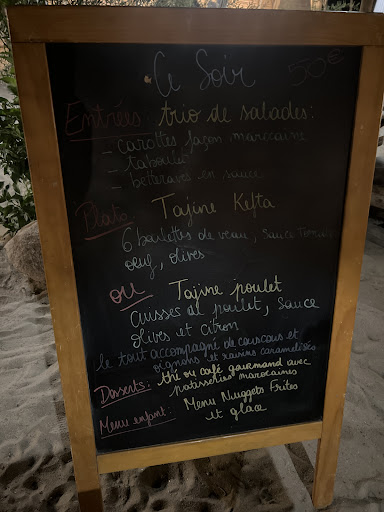 Ce Soir 50€
Entrées: trio de salades:
- carottes façon marocaine
- taboulé
- betteraves en sauce
Plats: Tajine Kefta
6 boulettes de veau, sauce
oeuf, olives
OU Tajine poulet
Cuisses de poulet, sauce
olives et citron
le tout accompagné de couscous et
oignons et raisins caramélisés
Desserts: thé ou café gourmand avec
patisseries marocaines
Menu enfant: Menu Nuggets Frites
et glace